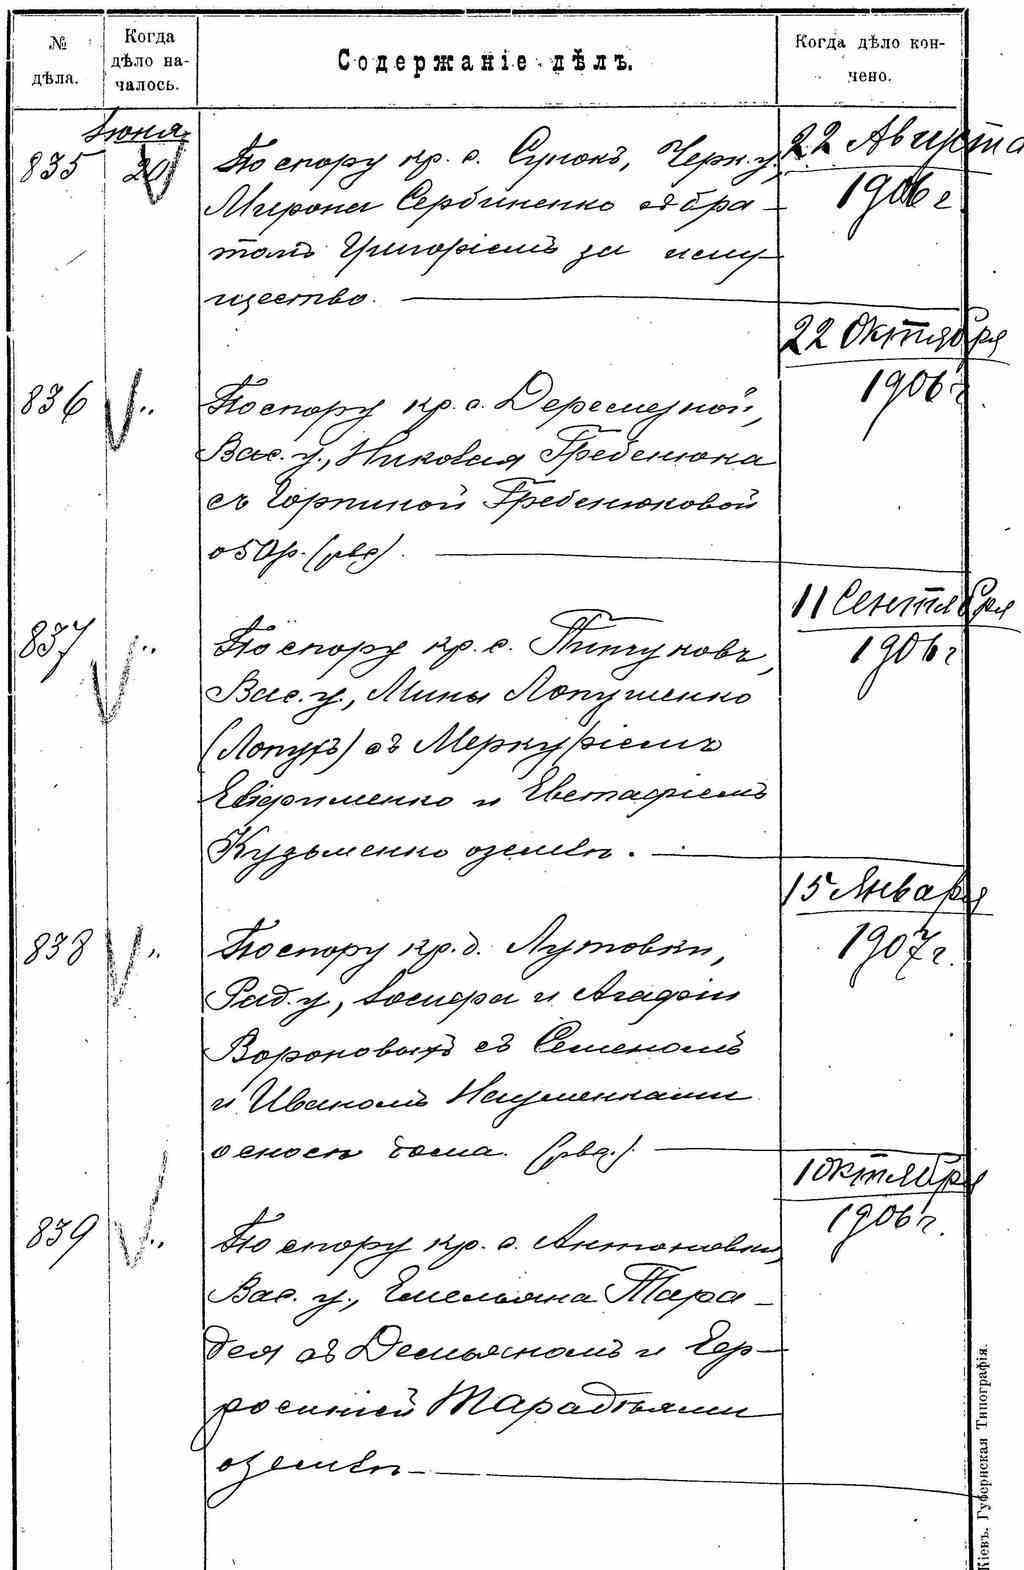 № дѣла.
Когда дѣло на-
чалось.
Содержаніе дѣлъ.
Когда дѣло кон-
чено.
Іюня
835 20
По спору кр. с. Сунокъ, Черк. у.
Мирона Сербиненко съ бра-
томъ Григоріемъ за иму-
щество.
22 Августа
1906 г.
836 "
По спору кр. с. Деремезной,
Вас. у., Николая Гребенюка
съ Горпиной Гребенюковой
о 50 р. (рвд).
22 Октября
1906 г.
837 "
По спору кр. с. Пищуковъ,
Вас. у., Мины Лопушенко
(Лопухъ) съ Меркуріемъ
Евфименко и Евстафіемъ
Кузьменко о землѣ.
11 Сентября
1906 г.
838 "
По спору кр. д. Лутовки,
Рад. у., Іосифа и Агафіи
Вороновыхъ съ Семеномъ
и Иваномъ Науменками
о сносѣ дома. (рвд.).
15 Января
1907 г.
839 "
По спору кр. с. Антоновки,
Вас. у., Емельяна Тара-
дея съ Демьяномъ и Еф-
росиніей Тарадѣями
о землѣ.
1 Октября
1906 г.
Кіевъ. Губернская Типографія.